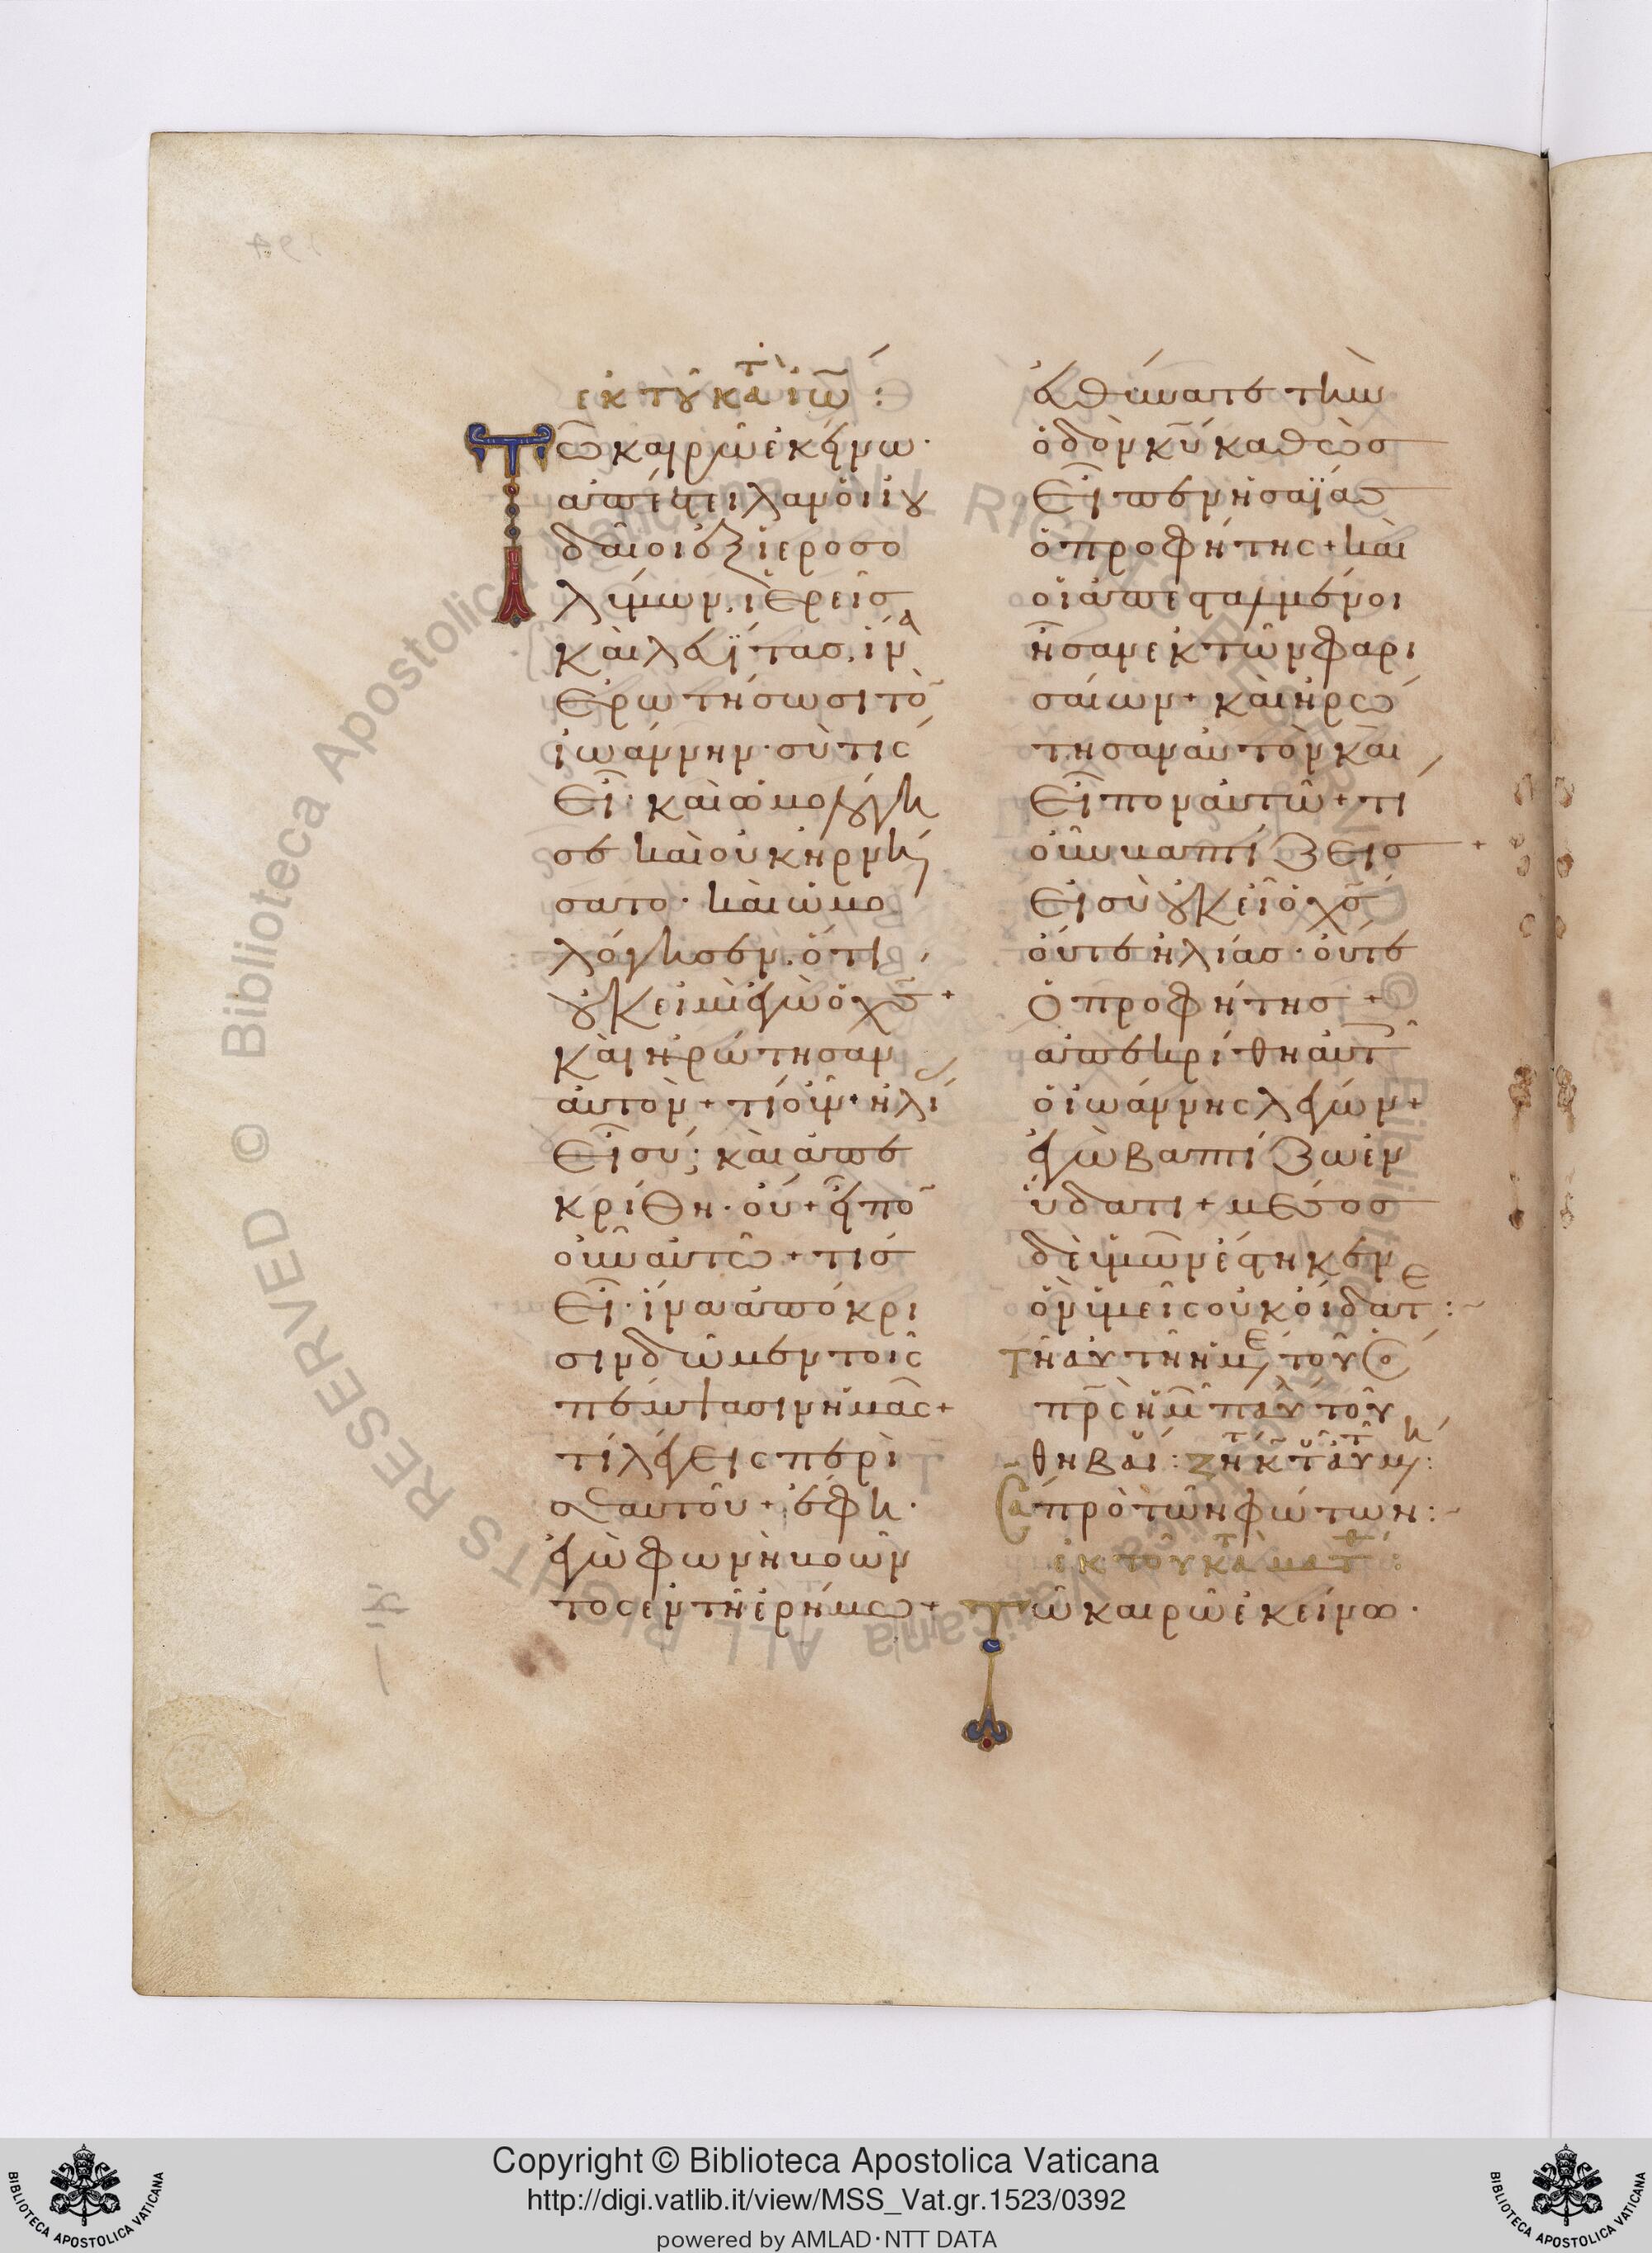 ἐκ τοῦ κατ ἰω :
Τῶ καιρῶ ἐκείνω ·
ἀπέστειλαν οἱ ἰου
δαῖοι ἐξ ἱεροσο
λύμων, ἱερεῖς
καὶ λευίτας, ἵνα
ἐρωτήσωσι τὸ
ἰωάννην · σὺ τίς
εἶ · καὶ ὡμολόγη
σε καὶ οὐκ ἠρνή
σατο · καὶ ὡμο
λόγησεν. ὅτι
οὐκ εἰμὶ ἐγὼ ὁ χς +
καὶ ἠρώτησαν
αὐτὸν + τί οὖν · ἠλί
εἶ σύ ; καὶ ἀπε
κρίθη · οὔ + εἶπο
οὖν αὐτῶ + τίς
εἶ · ἵνα ἀπόκρι
σιν δῶμεν τοῖς
πέμψασιν ἡμᾶς +
τί λέγεις περὶ
σεαυτοῦ + ἔφη ·
ἐγὼ φωνὴ βοῶν
τος ἐν τῆ ἐρήμω +
εὐθύνατε τὴν
ὁδὸν κυ καθὼς
εἶπεν ἠσαΐας
ὁ προφήτης + καὶ
οἱ ἀπεσταλμένοι
ἦσαν ἐκ τῶν φαρι
σαίων + καὶ ἠρώ
τησαν αὐτὸν καὶ
εἶπον αὐτῶ + τί
οὖν βαπτίζεις +
εἰ σὺ οὐκ εἶ ὁ χς
οὔτε ἠλίας · οὔτε
ὁ προφήτης +
ἀπεκρίθη αὐτ
ὁ ἰωάννης λέγων +
ἐγὼ βαπτίζω ἐν
ὕδατι + μέσος
δὲ ὑμῶν ἕστηκεν
ὃν ὑμεῖς οὐκ οἴδατε :~
πρὸ τῶν φώτων :~
ἐκ τοῦ κατ ματθ :
Τῶ καιρῶ ἐκείνω ·
© Biblioteca Apostolica Vaticana ALL RIGHTS RESERVED
Copyright © Biblioteca Apostolica Vaticana
http://digi.vatlib.it/view/MSS_Vat.gr.1523/0392
powered by AMLAD·NTT DATA
BIBLIOTECA APOSTOLICA VATICANA
BIBLIOTECA APOSTOLICA VATICANA